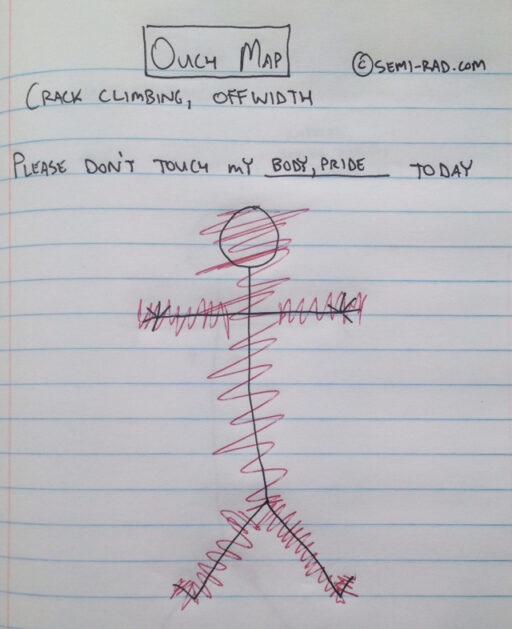 OUCH MAP
© SEMI-RAD.COM
CRACK CLIMBING, OFFWIDTH
PLEASE DON'T TOUCH MY BODY, PRIDE TODAY